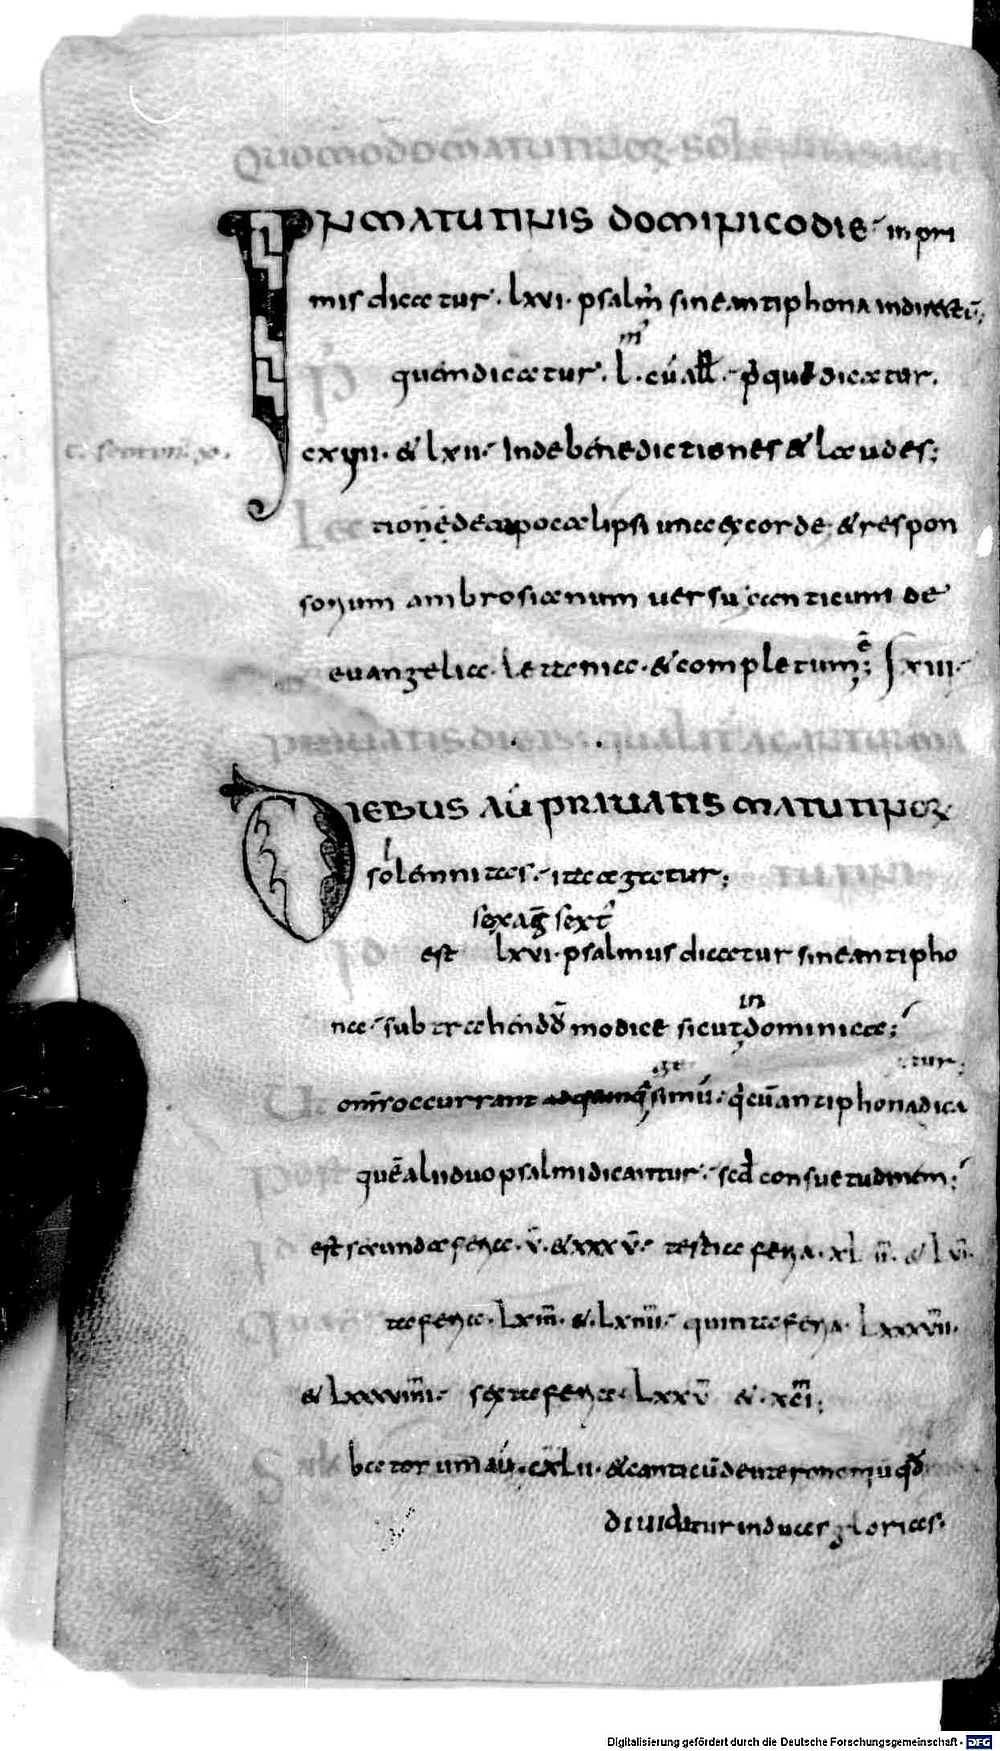 QUOMODO MATUTINOR SOLEMNITAS AGAT
IN MATUTINIS DOMINICO DIE in pri
mis dicatur. lxvi. psalm sine antiphona indirectu;
Post quem dicatur. l. cu all. p quē dicatur.
cxvii. & lxii. Inde benedictiones & laudes;
Lectionē de apocalipsi una ex corde & respon
sorium ambrosianum versu canticum de
evangelia. letania. & completum ē; xiii.
PRIVATIS DIEBUS QUALITER
DIEBUS AU PRIVATIS MATUTINOR
solemnitas. ita agatur;
sexag sext
Id est lxvi. psalmus dicatur sine antipho
na. subtrahendo modice sicut in dominica;
Ut omnes occurrant simul. qi cū antiphona dica
tur;
Post quē alii duo psalmi dicantur. scd consuetudinem;
Id est secunda feria. v. & xxxv. tertia feria. xl ii. & lvi.
Quarta feria. lxiii. & lxiiii. quinta feria. lxxxvii.
& lxxxviiii. sexta feria. lxxv & xci;
Sabbatorum au. cxlii. & canticū deuteronomiu qd
dividatur in duas glorias.
Digitalisierung gefördert durch die Deutsche Forschungsgemeinschaft - DFG